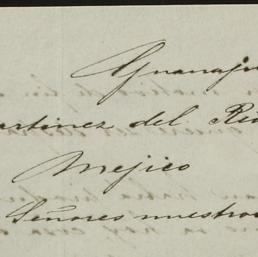 Guanaju
artinez del Rio
Mejico
Señores nuestros